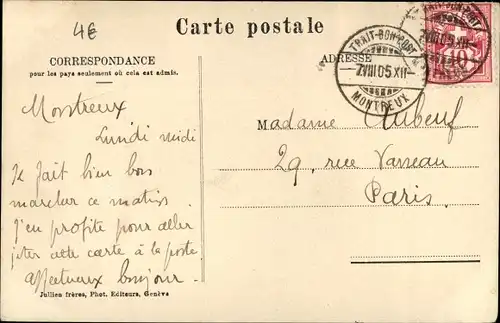 4€
Carte postale
CORRESPONDANCE
pour les pays seulement où cela est admis.
ADRESSE
TRAIT-BON-PORT
7.VIII.05.XII
MONTREUX
10
Montreux
Lundi midi
Il fait bien bon
marcher ce matin
J'en profite pour aller
jeter cette carte à la poste
Affectueux bonjour.
Madame Aubeuf
29, rue Vaneau
Paris.
Jullien frères, Phot. Editeurs, Genève